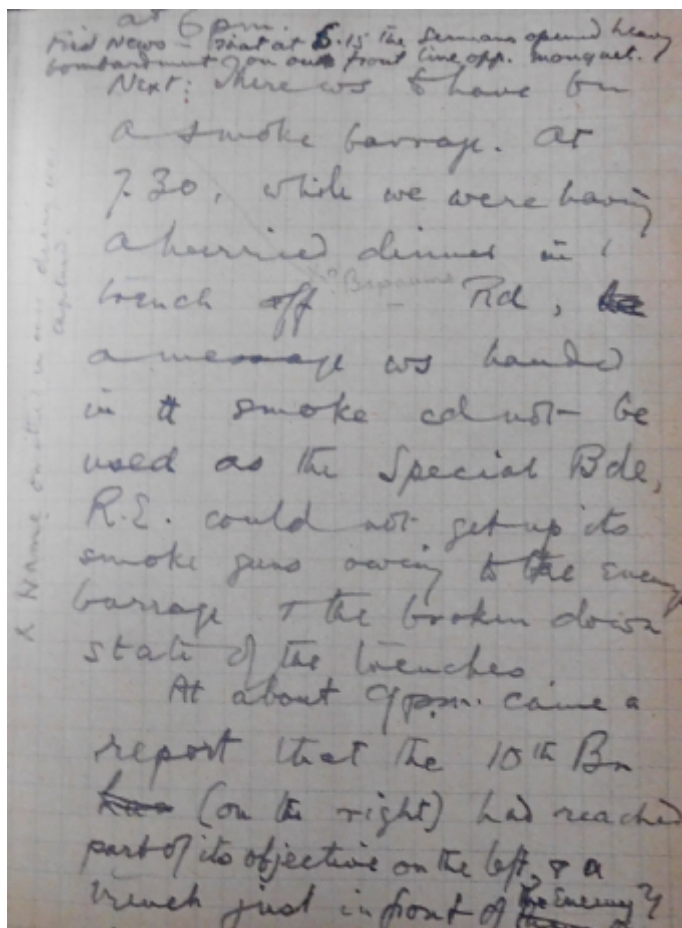 at 6 pm.
First News – that at 6.15 the Germans opened heavy
bombardment on our front line opp. Mouquet.
Next: there ws to have bn
a smoke barrage. At
7.30, while we were having
a hurried dinner in /
trench off ? Bapaume Rd,
a message ws handed
in tt smoke cd not be
used as the Special Bde,
R.E. could not get up its
smoke guns owing to the Enemy
barrage & the broken down
state of the trenches.
At about 9 p.m. came a
report that the 10th Bn
has (on the right) had reached
part of its objective on the left, & a
trench just in front of the Enemy's
X Name
captured.